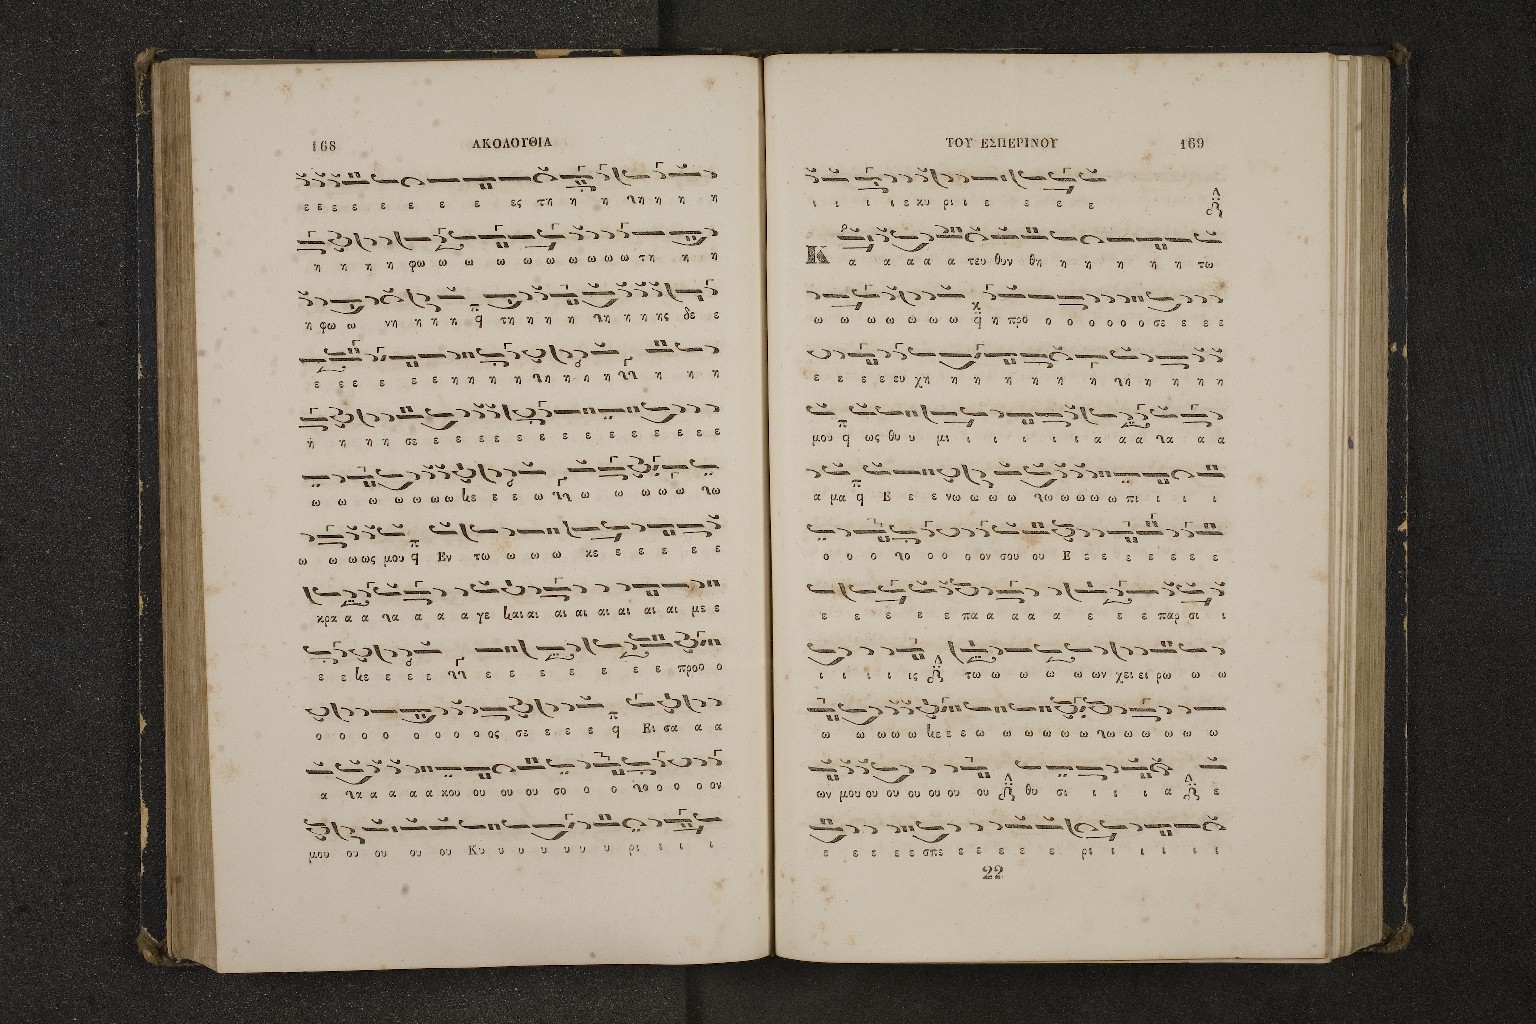 168 ΑΚΟΛΟΥΘΙΑ
ε ε ε ε ε ε ε ε ε ες τη η η χη η η η
η η η η φω ω ω ω ω ω ω ω ω ω τη η η
η φω ω νη η η η τη η η η χη η η ης δε ε
ε ε ε ε ε ε η η η η χη η η η η η η
ή η η η σε ε ε ε ε ε ε ε ε ε ε ε ε ε ε
ω ω ω ω ω ω ω ε ε ε ω ω ω ω ω χω
ω ω ω ως μου Εν τω ω ω ω κε ε ε ε ε ε
κρα α α χα α α α γε και αι αι αι αι αι αι αι με ε
ε ε ε ε ε ε ε ε ε ε ε ε ε προ ο ο
ο ο ο ο ο ο ο ο ος σε ε ε ε ε Ει σα α α
α χα α α α α κου ου ου ου σο ο ο χο ο ο ο ον
μου ου ου ου ου Κυ υ υ υ υ υ υ ρι ι ι ι
ΤΟΥ ΕΣΠΕΡΙΝΟΥ 169
ι ι ι ι ε κυ ρι ε ε ε ε ε
Κ α α α α α τευ θυν θη η η η η η τω
ω ω ω ω ω ω ω η προ ο ο ο ο ο ο σε ε ε ε
ε ε ε ε ευ χη η η η η η η χη η η η η
μου ως θυ υ μι ι ι ι ι ι α α α χα α α
α μα Ε ε ε νω ω ω ω χω ω ω ω ω πι ι ι ι
ο ο ο χο ο ο ο ον σου ου Ε ε ε ε ε ε ε ε
ε ε ε ε ε πα α α α α ε ε ε παρ σι ι
ι ι ι ι ις τω ω ω ω ω ων χει ει ρω ω ω
ω ω ω ω ε ε ε ω ω ω ω ω ω χω ω ω ω ω ω
ων μου ου ου ου ου ου ου θυ σι ι ι ι α ε
ε ε ε ε ε σπε ε ε ε ε ε ρι ι ι ι ι ι
22